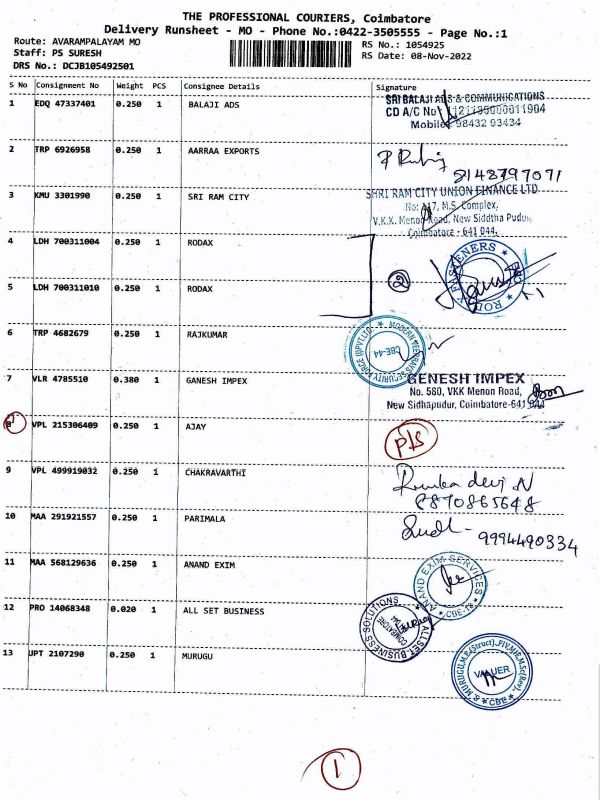 THE PROFESSIONAL COURIERS, Coimbatore
Delivery Runsheet - MO - Phone No.:0422-3505555 - Page No.:1
Route: AVARAMPALAYAM MO
Staff: PS SURESH
DRS No.: DCJB105492501
RS No.: 1054925
RS Date: 08-Nov-2022
S No Consignment No Weight PCS Consignee Details Signature
1 EDQ 47337401 0.250 1 BALAJI ADS
SRI BALAJI ADS & COMMUNICATIONS
CD A/C No
Mobile: 98432 93434
2 TRP 6926958 0.250 1 AARRAA EXPORTS
8148797071
3 KMU 3301990 0.250 1 SRI RAM CITY
SHRI RAM CITY UNION FINANCE LTD
No: M.S. Complex,
V.K.K. Menon Road, New Siddtha Pudur,
Coimbatore - 641 044.
4 LDH 700311004 0.250 1 RODAX
5 LDH 700311010 0.250 1 RODAX
2
RODAX FASTENERS
6 TRP 4682679 0.250 1 RAJKUMAR
MODERN VETERANS SECURITY FORCE (I) PVT LTD.
CBE-44
7 VLR 4785510 0.380 1 GANESH IMPEX
GENESH IMPEX
No. 580, VKK Menon Road,
New Sidhapudur, Coimbatore-641 044
8 VPL 215306409 0.250 1 AJAY
P/S
9 VPL 499919032 0.250 1 CHAKRAVARTHI
devi N
8870865648
10 MAA 291921557 0.250 1 PARIMALA
9994490334
11 MAA 568129636 0.250 1 ANAND EXIM
ANAND EXIM SERVICES
12 PRO 14068348 0.020 1 ALL SET BUSINESS
ALL SET BUSINESS SOLUTIONS
COIMBATORE
13 JPT 2107290 0.250 1 MURUGU
VALUER
CBE
1